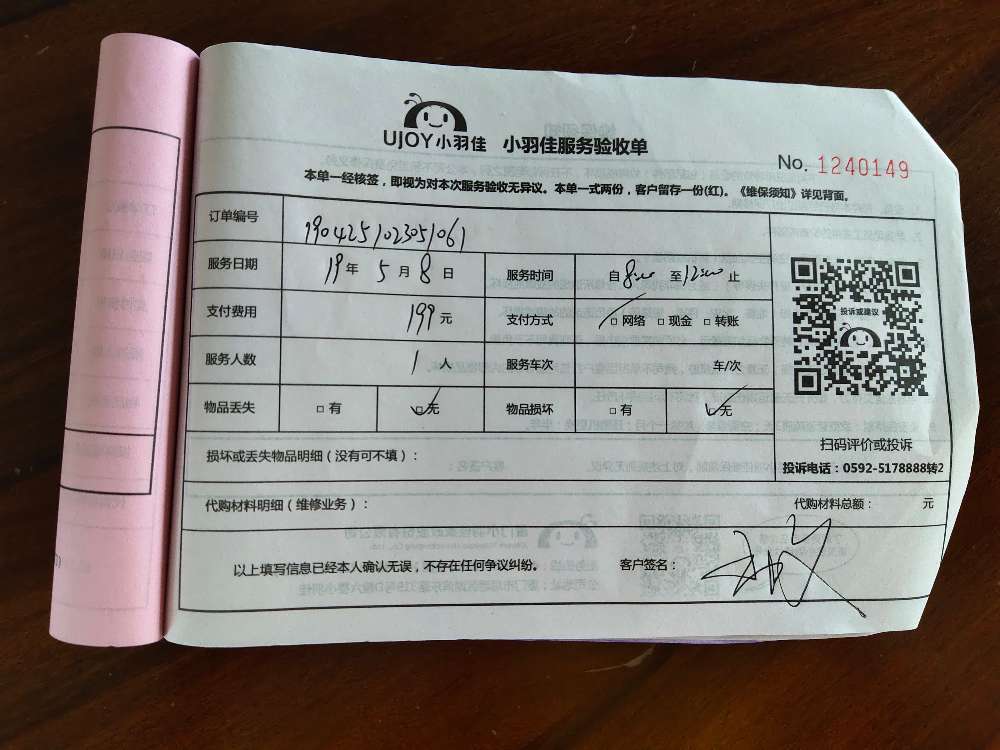 UJOY小羽佳 小羽佳服务验收单
No. 1240149
本单一经核签，即视为对本次服务验收无异议。本单一式两份，客户留存一份(红)。《维保须知》详见背面。
订单编号 1904251023051061
服务日期 19年 5月 8日 服务时间 自8:00 至12:00止
支付费用 199元 支付方式 □网络 □现金 □转账
服务人数 1人 服务车次 车/次
物品丢失 □有 □无 物品损坏 □有 □无
投诉或建议
扫码评价或投诉
损坏或丢失物品明细（没有可不填）：
投诉电话：0592-5178888转2
代购材料明细（维修业务）： 代购材料总额： 元
以上填写信息已经本人确认无误，不存在任何争议纠纷。 客户签名：